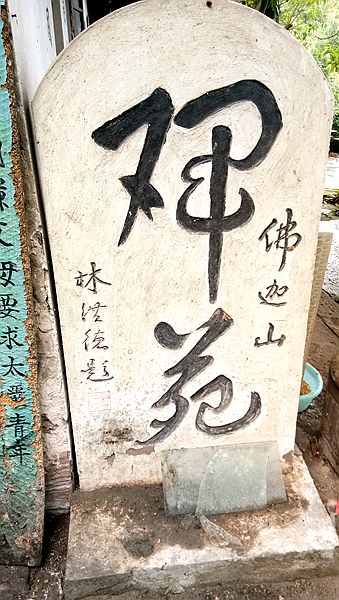 佛迦山
碑苑
林洪德题
父母要求太青年